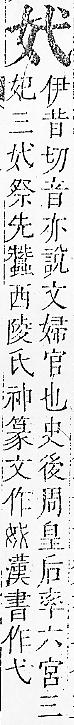 㚤
伊昔切音亦說文婦官也史後周皇后率六宮三
妃三㚤祭先蠶西陵氏神篆文作㚤漢書作弋